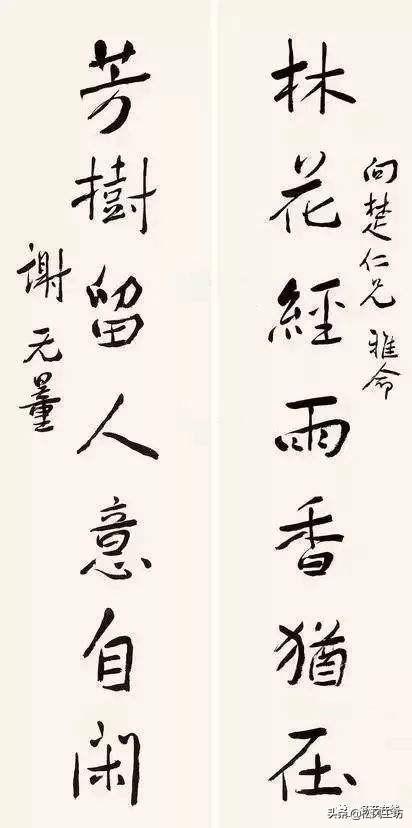 向楚仁兄 雅命
林花經雨香猶在
芳樹留人意自閑
謝无量
头条